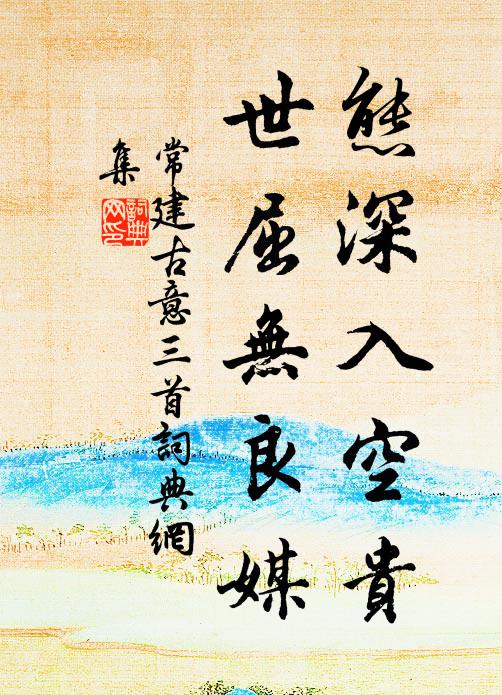 熊深入空貴
世屈無良媒
常建古意三首詞典網
集
詞典
网印